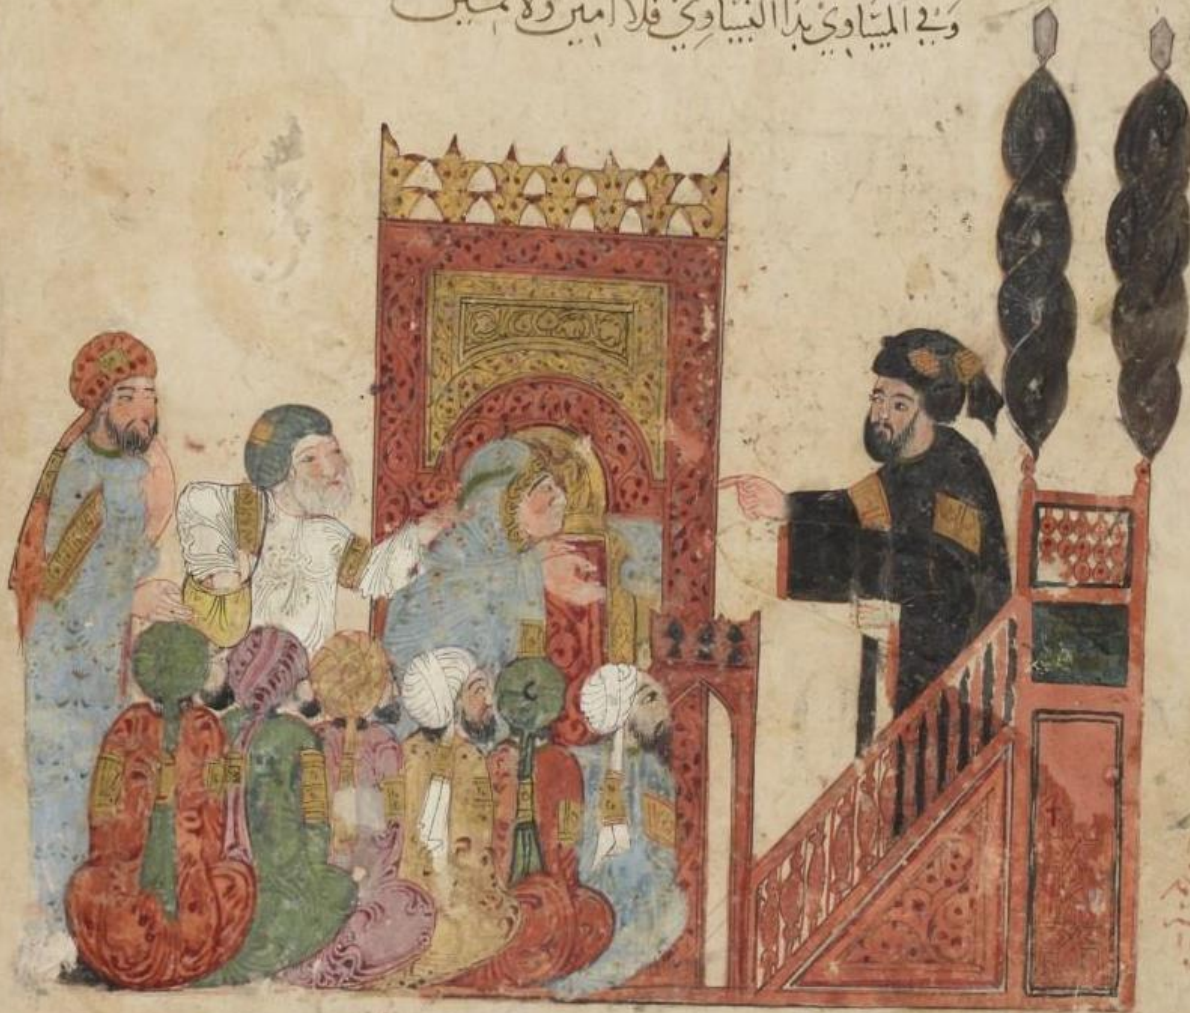 وفي المساوي بدا التساوي فلا امين ولا ثمين